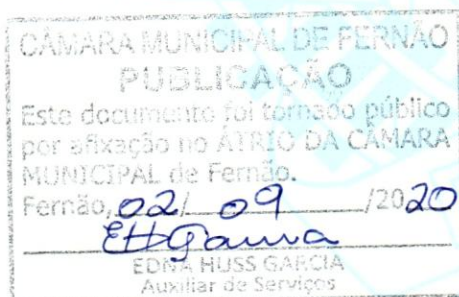 CÂMARA MUNICIPAL DE FERNÃO
PUBLICAÇÃO
Este documento foi tornado público
por afixação no ÁTRIO DA CÂMARA
MUNICIPAL de Fernão.
Fernão, 02/ 09 /2020
EDNA HUSS GARCIA
Auxiliar de Serviços